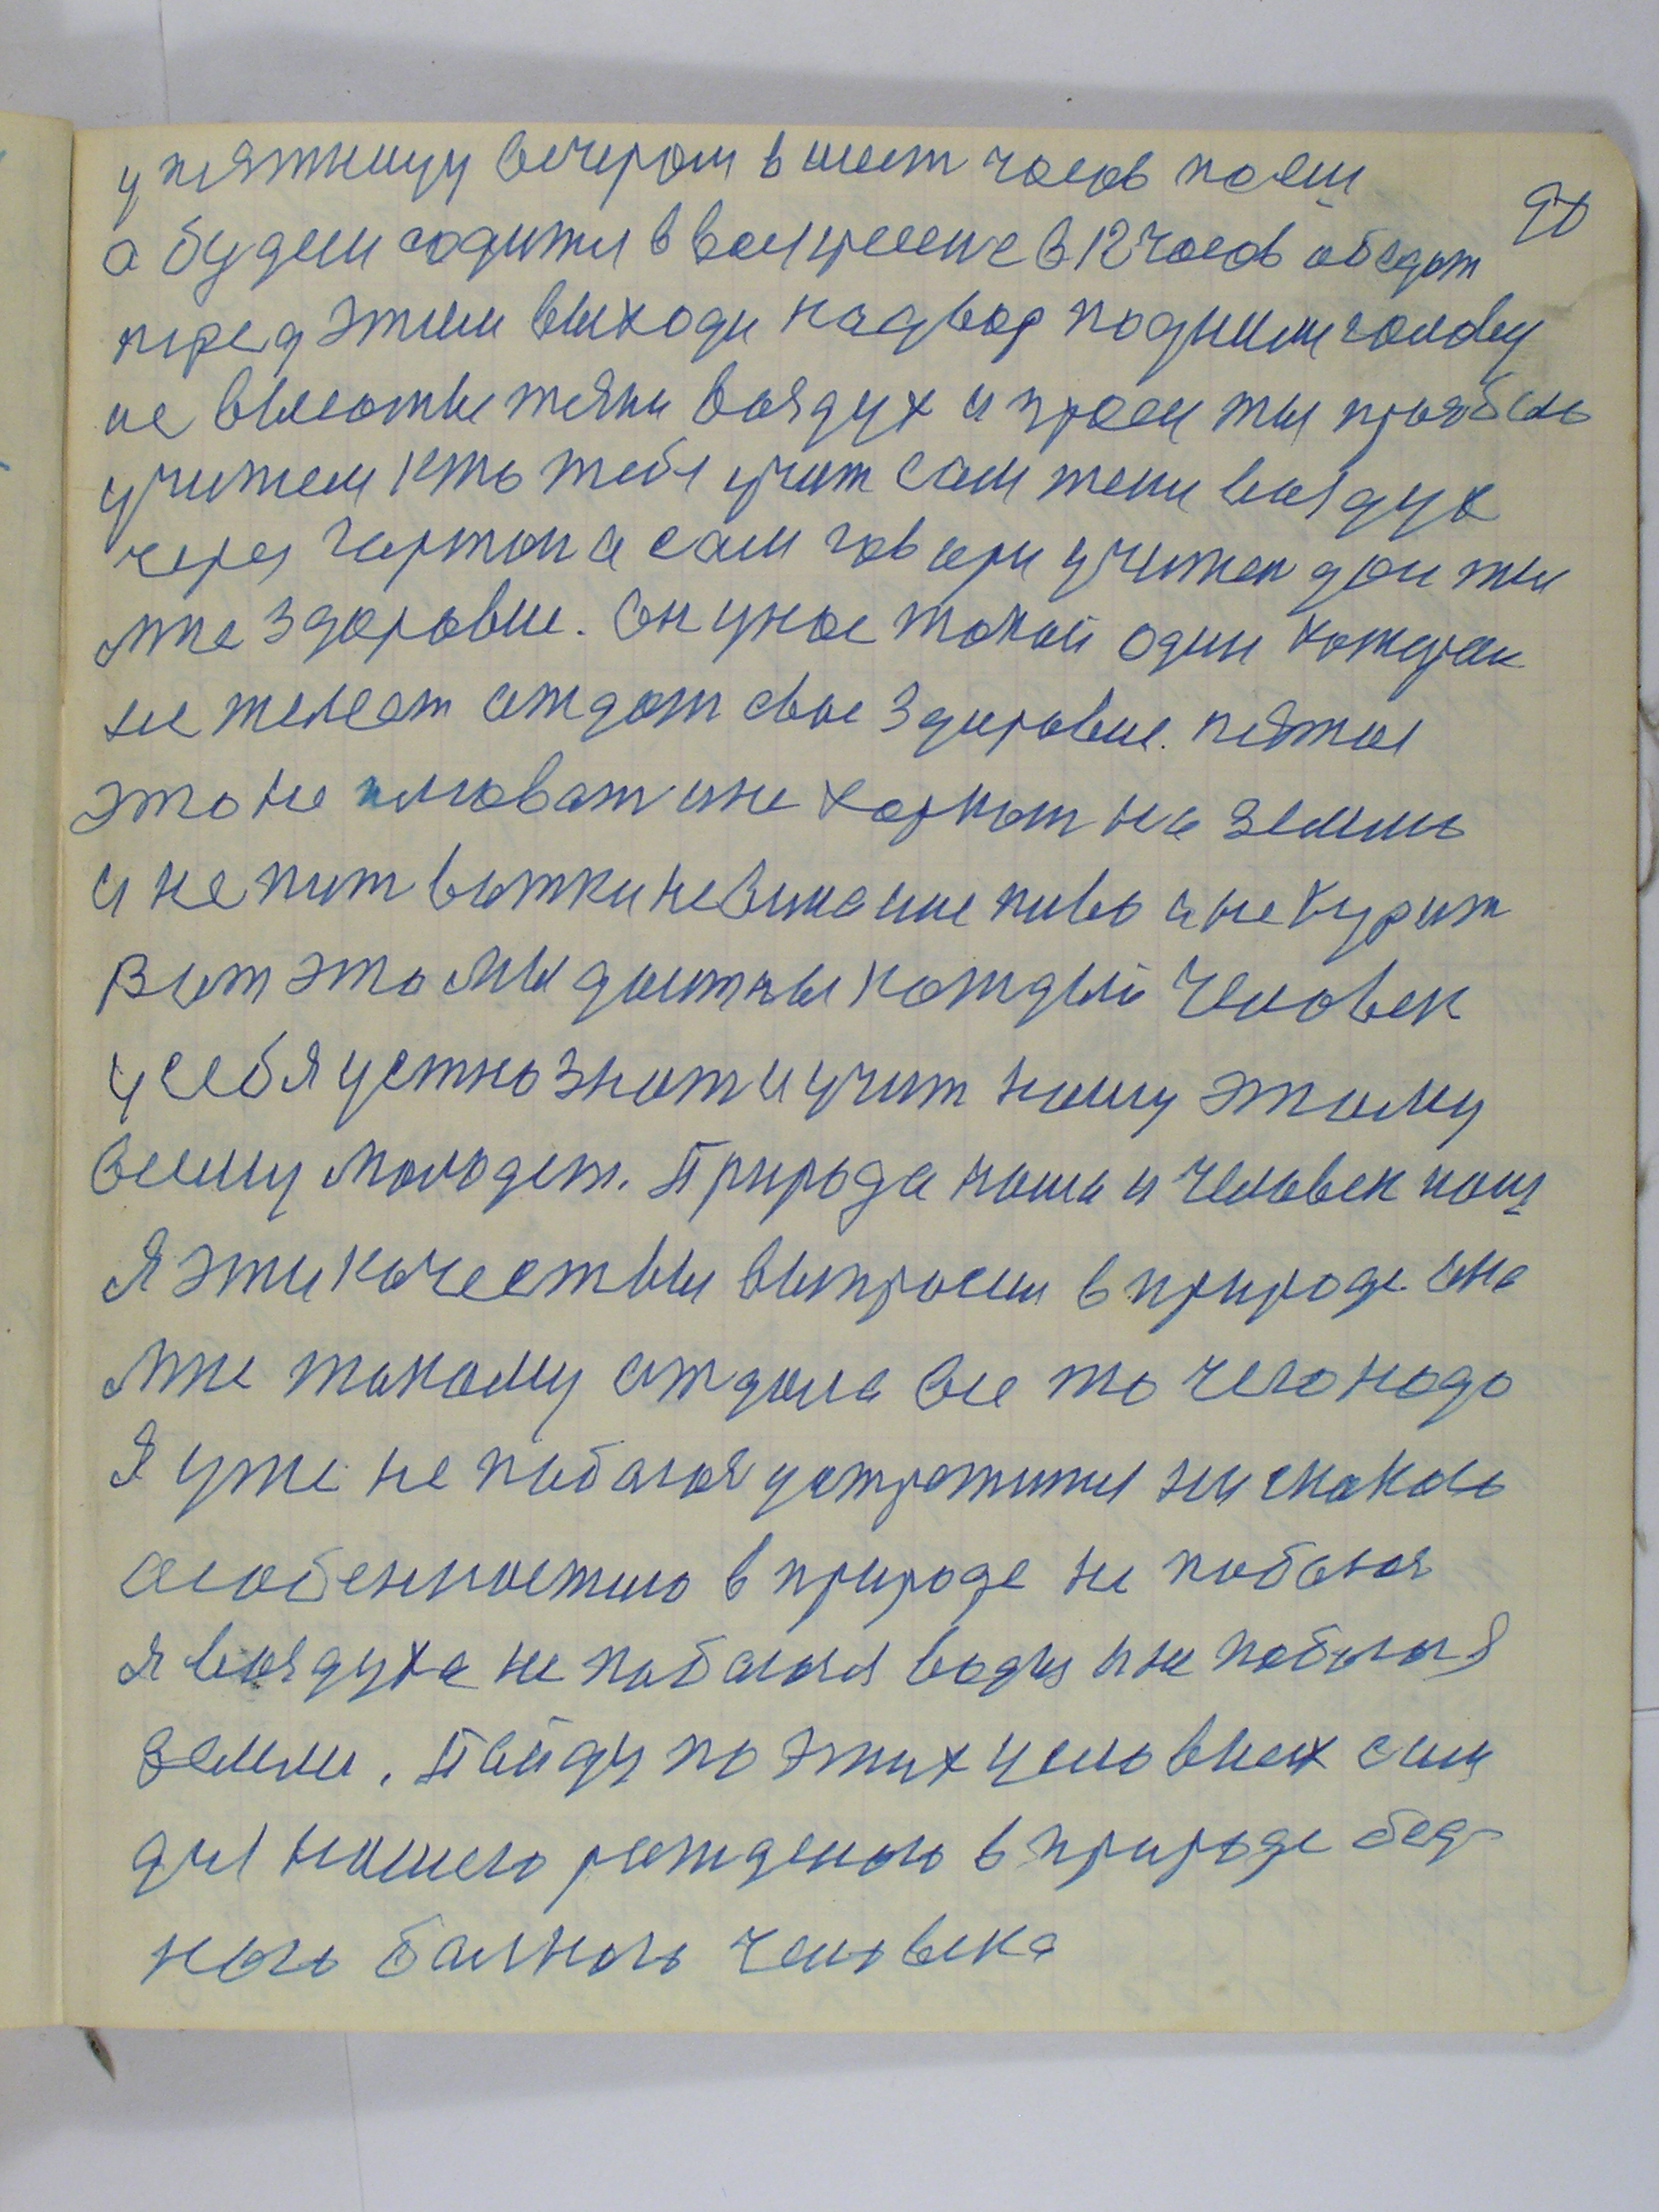 у пятницу вечером в шест часов поеш
90
а будеш содитися в воскресение в 12 часов обедат
перед этим выходи надвор подними голову
не высоты тяни воздух и проси ты
учителя кто тебя учит сам тени воздух
через гортон а сам говори учител дай ты
мне здоровие. Он у нас такой один которак
не желеет отдат свое здоровие. пятое
это не плюват и не харкат на землю
и не пит вотки не вина и не пиво и не курит
Вот это мы должны каждый человек
у себя устно знат и учит нашу этому
всему молодеж. Природа наша и человек наш
Я эти качествы выпросил в природе она
мне такому отдала все то чего надо
Я уже не побоюся устретится ни скакою
особенностию в природе не побоюся
я воздуха не побоюся воды и не побоюся
земли. Пойду по этих условиех сам
для нашего рожденого в природе бед-
ного болного человека